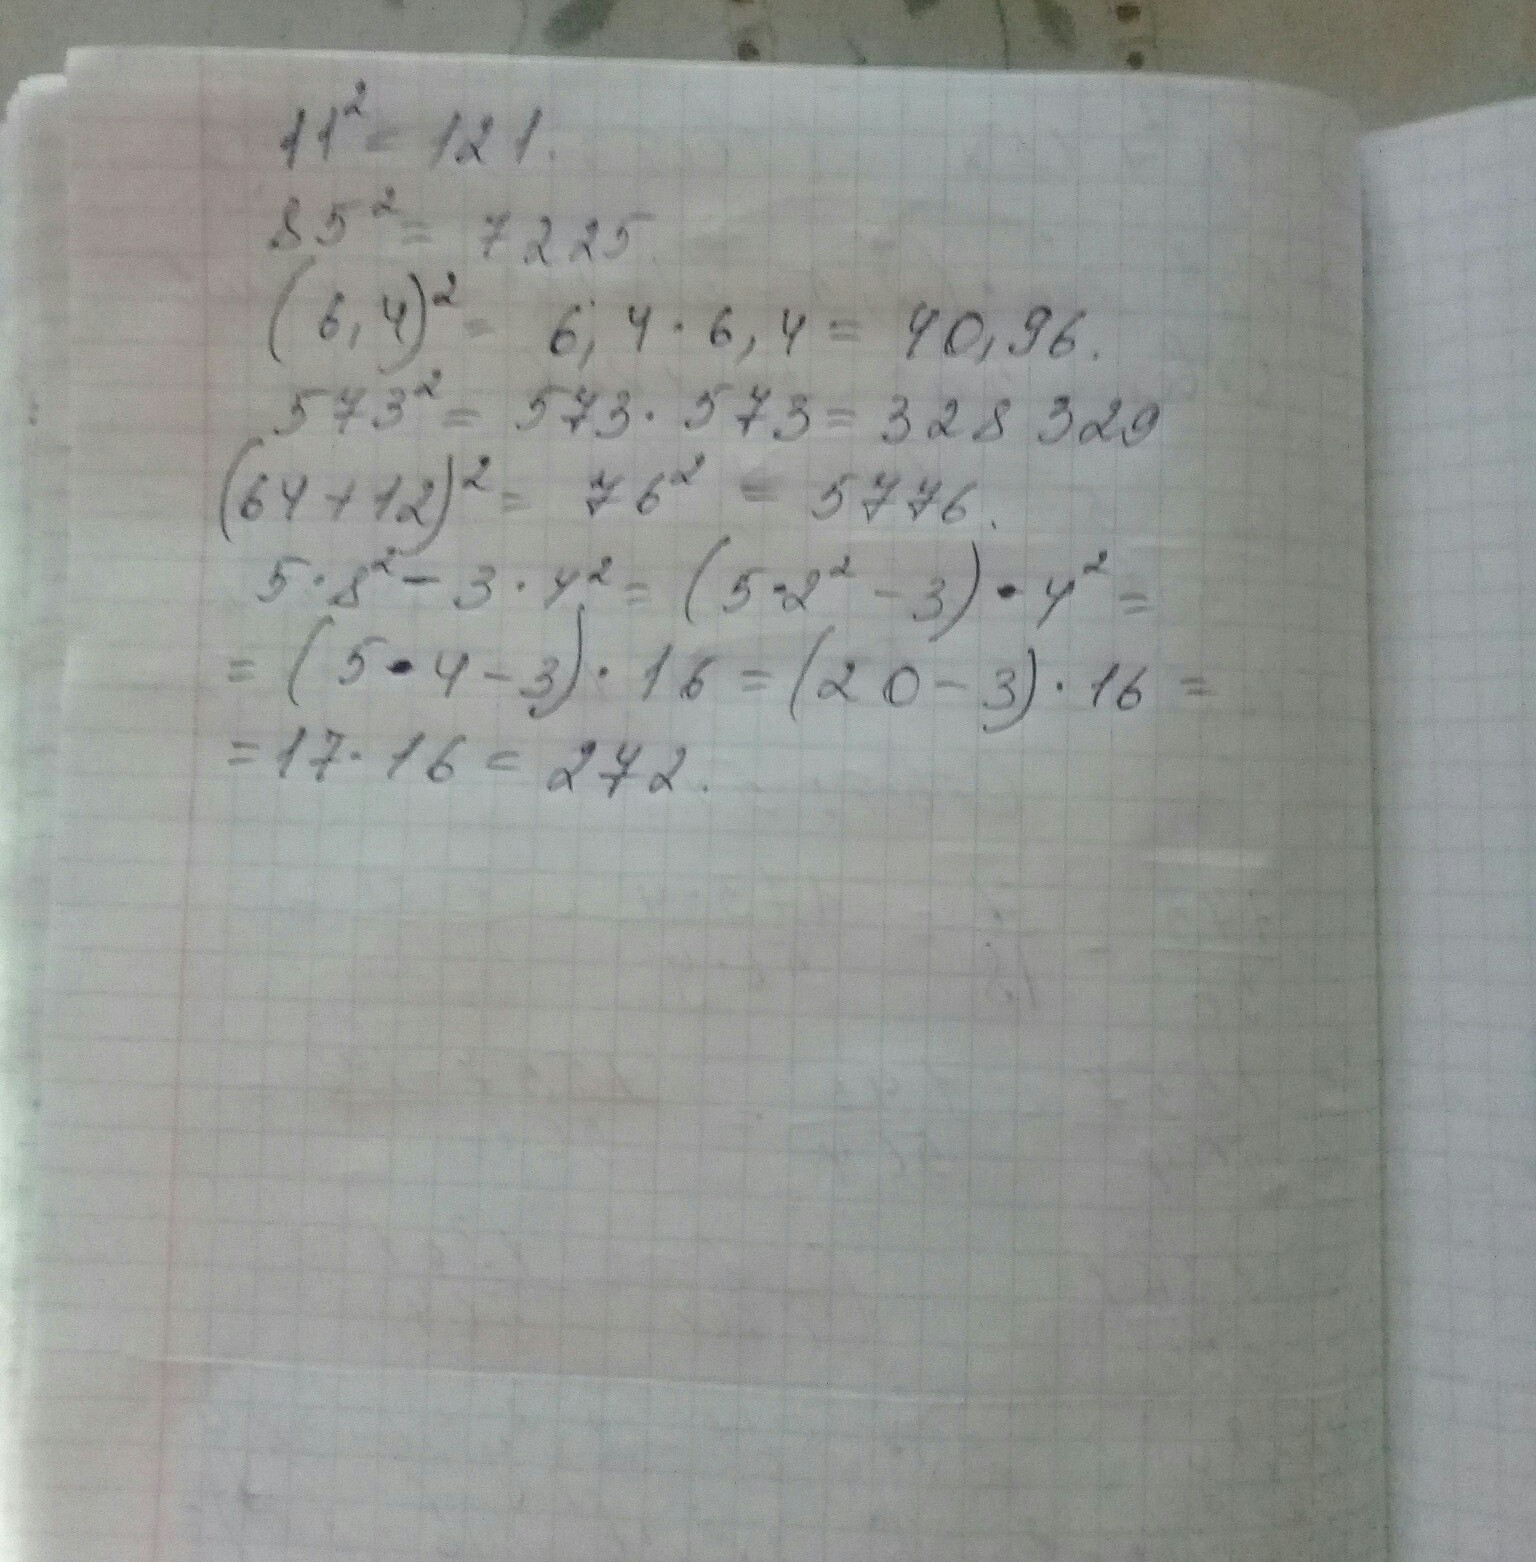 11² = 121.
85² = 7225.
(6,4)² = 6,4 · 6,4 = 40,96.
573² = 573 · 573 = 328 329
(64 + 12)² = 76² = 5776.
5 · 8² - 3 · 4² = (5 · 2² - 3) · 4² =
= (5 · 4 - 3) · 16 = (20 - 3) · 16 =
= 17 · 16 = 272.